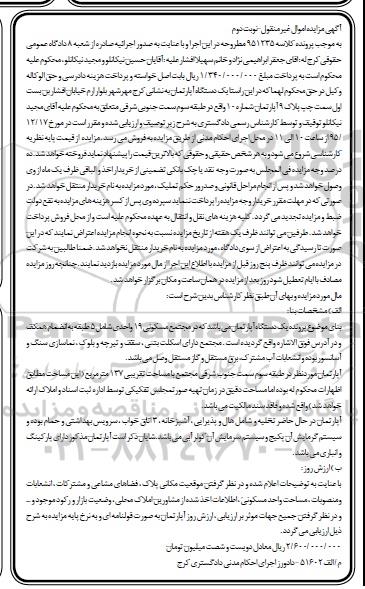 آگهی مزایده اموال غیر منقول - نوبت دوم
به موجب پرونده کلاسه ۹۵۱۲۳۵ مطروحه در این اجرا و با عنایت به صدور اجرائیه صادره از شعبه ۸ دادگاه عمومی
حقوقی کرج له: آقای جعفر ابراهیمی نژاد و خانم سهیلا افشار علیه: آقایان حسین نیکانلو و مجید نیکانلو، محکوم علیه
محکوم است به پرداخت مبلغ ۱/۳۴۰/۰۰۰/۰۰۰ ریال بابت اصل خواسته و پرداخت هزینه دادرسی و حق الوکاله
وکیل در حق محکوم لهما که در این راستا یک دستگاه آپارتمان به نشانی کرج مهرشهر بلوار ارم خیابان افشارین بست
اول سمت چپ پلاک ۹ آپارتمان شماره ۱۰ واقع در طبقه سوم سمت جنوبی شرقی متعلق به محکوم علیه آقای مجید
نیکانلو توقیف و توسط کارشناس رسمی دادگستری به شرح زیر توصیف و ارزیابی شده و مقرر است در مورخ ۱۲/۱۷
/۹۵ از ساعت ۱۰ الی ۱۱ در محل اجرای احکام مدنی از طریق مزایده به فروش می رسد. مزایده از قیمت پایه نظریه
کارشناسی شروع می شود و به هر شخص حقیقی و حقوقی که بالاترین قیمت را پیشنهاد نماید فروخته خواهد شد. ده
درصد وجه مزایده فی المجلس به صورت وجه نقد یا چک بانکی تضمینی از خریدار اخذ و الباقی ظرف یک ماه از وی
وصول خواهد شد و پس از انجام مراحل قانونی و صدور حکم تملیک، مورد مزایده به نام خریدار منتقل خواهد شد. در
صورتی که در مهلت مقرر خریدار وجه مزایده را پرداخت ننماید سپرده وی پس از کسر هزینه های مزایده به نفع دولت
ضبط و مزایده تجدید می گردد. کلیه هزینه های نقل و انتقال به عهده محکوم علیه است و از محل فروش پرداخت
خواهد شد. طرفین می توانند ظرف یک هفته از تاریخ مزایده نسبت به نحوه انجام مزایده اعتراض نمایند که در این
صورت تا رسیدگی به اعتراض از سوی دادگاه، مورد مزایده به نام خریدار منتقل نخواهد شد. ضمنا طالبین به شرکت
در مزایده می توانند ظرف پنج روز قبل از مزایده با اطلاع این اجرا از مال مورد مزایده بازدید نمایند. چنانچه روز مزایده
مصادف با ایام تعطیل شود روز بعد از مزایده در همان ساعت و مکان برگزار خواهد شد.
مال مورد مزایده و بهای آن طبق نظر کارشناس بدین شرح است:
الف) مشخصات بنا:
بنای موضوع پرونده یک دستگاه آپارتمان می باشد که در مجتمع مسکونی ۱۹ واحدی شامل ۵ طبقه به انضمام همکف
و در آدرس فوق الاشاره واقع گردیده است. مجتمع دارای اسکلت بتنی، سقف و تیرچه و بلوک، نماسازی سنگ و
آسانسور بوده و انشعابات آب مشترک، برق مستقل و گاز مستقل وصل می باشد.
آپارتمان مورد نظر در طبقه سوم سمت جنوب شرقی مجتمع با مساحت تقریبی ۱۳۷ متر مربع (این مساحت مطابق
اظهارات محکوم له بوده اما مساحت دقیق در زمان تهیه صورتمجلس تفکیکی توسط اداره ثبت اسناد و املاک ارائه
خواهد شد) واقع شده و فاقد سند مالکیت می باشد.
آپارتمان در حال حاضر تخلیه و شامل هال و پذیرایی، آشپزخانه، ۳ اتاق خواب، سرویس بهداشتی و حمام بوده و
سیستم گرمایش آن پکیج و سیستم سرمایش آن کولر آبی می باشد. شایان ذکر است آپارتمان مذکور دارای پارکینگ
و انباری می باشد.
ب) ارزش روز:
با عنایت به توضیحات اعلام شده و در نظر گرفتن موقعیت مکانی پلاک، فضاهای مشاعی و مشترکات، انشعابات
و منصوبات، مساحت واحد مسکونی، اطلاعات اخذ شده از مشاورین املاک محلی، وضعیت بازار و رکود موجود و ...
و در نظر گرفتن جمیع جهات موثر بر ارزیابی، ارزش روز آپارتمان به صورت قولنامه ای و به نرخ پایه مزایده به شرح
ذیل ارزیابی می گردد.
۲/۶۰۰/۰۰۰/۰۰۰ ریال معادل دویست و شصت میلیون تومان
م/الف ۵۱۶۰۲ - دادورز اجرای احکام مدنی دادگستری کرج
۰۲۱-۸۸۳۴۹۶۷۰-۵